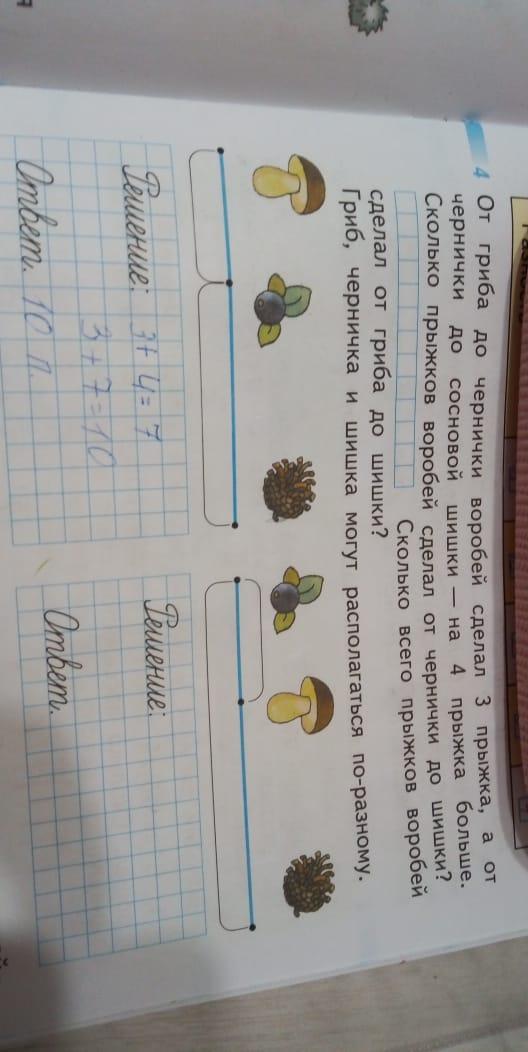 4 От гриба до чернички воробей сделал 3 прыжка, а от
чернички до сосновой шишки — на 4 прыжка больше.
Сколько прыжков воробей сделал от чернички до шишки?
Сколько всего прыжков воробей
сделал от гриба до шишки?
Гриб, черничка и шишка могут располагаться по-разному.
Решение: 3+4=7
3+7=10
Ответ. 10 п.
Решение:
Ответ.